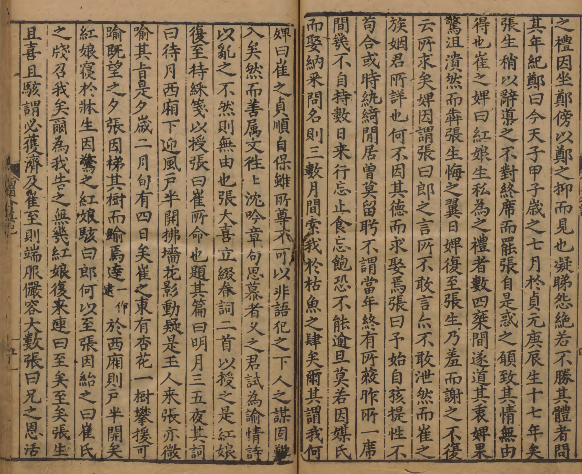 之禮因坐鄭傍以鄭之抑而見也凝睇怨絕若不勝其體者問
其年紀鄭曰今天子甲子歲之七月於貞元庚辰生十七年矣
張生稍以辭導之不對終席而罷張自是惑之願致其情無由
得也崔之婢曰紅娘生私為之禮者數四乘間遂道其衷婢果
驚沮潰然而奔張生悔之翼日婢復至張生乃羞而謝之不復
云所求矣婢因謂張曰郎之言所不敢言亦不敢泄然而崔之
族姻君所詳也何不因其德而求娶焉張曰予始自孩提性不
苟合或時紈綺閒居曾莫留盼不謂當年終有所蔽昨所一席
間幾不自持數日來行忘止食忘飽恐不能逾旦莫若因媒氏
而娶納采問名則三數月間索我於枯魚之肆矣爾其謂我何
婢曰崔之貞順自保雖所尊不可以非語犯之下人之謀固難
入矣然而善屬文往往沈吟章句思慕者久之君試為諭情詩
以亂之不然則無由也張大喜立綴春詞二首以授之是紅娘
復至持綵箋以授張曰崔所命也題其篇曰明月三五夜其詞
曰待月西廂下迎風戶半開拂墻花影動疑是玉人來張亦微
喻其旨是夕歲二月旬有四日矣崔之東有杏花一樹攀援可
踰既望之夕張因梯其樹而踰焉達一作逮於西廂則戶半開矣
紅娘寢於牀生因驚之紅娘駭曰郎何以至張因紿之曰崔氏
之牋召我矣爾為我告之無幾紅娘復來連曰至矣至矣張生
且喜且駭謂必獲濟及崔至則端服儼容大數張曰兄之恩活